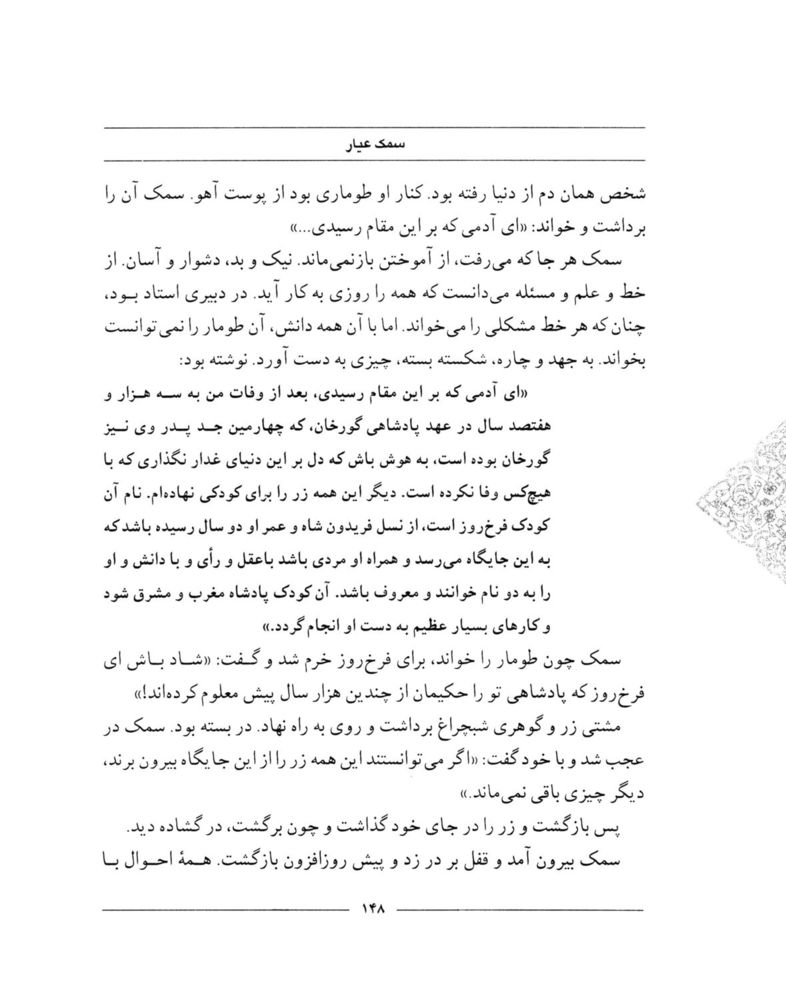 سمک عیار
شخص همان دم از دنیا رفته بود. کنار او طوماری بود از پوست آهو. سمک آن را
برداشت و خواند: «ای آدمی که بر این مقام رسیدی...»
سمک هر جا که می‌رفت، از آموختن بازنمی‌ماند. نیک و بد، دشوار و آسان. از
خط و علم و مسئله می‌دانست که همه را روزی به کار آید. در دبیری استاد بود،
چنان‌که هر خط مشکلی را می‌خواند. اما با آن همه دانش، آن طومار را نمی‌توانست
بخواند. به جهد و چاره، شکسته بسته، چیزی به دست آورد. نوشته بود:
«ای آدمی که بر این مقام رسیدی، بعد از وفات من به سه هزار و
هفتصد سال در عهد پادشاهی گورخان، که چهارمین جد پدر وی نیز
گورخان بوده است، به هوش باش که دل بر این دنیای غدار نگذاری که با
هیچ‌کس وفا نکرده است. دیگر این همه زر را برای کودکی نهاده‌ام. نام آن
کودک فرخ‌روز است، از نسل فریدون شاه و عمر او دو سال رسیده باشد که
به این جایگاه می‌رسد و همراه او مردی باشد باعقل و رأی و با دانش و او
را به دو نام خوانند و معروف باشد. آن کودک پادشاه مغرب و مشرق شود
و کارهای بسیار عظیم به دست او انجام گردد.»
سمک چون طومار را خواند، برای فرخ‌روز خرم شد و گفت: «شاد باش ای
فرخ‌روز که پادشاهی تو را حکیمان از چندین هزار سال پیش معلوم کرده‌اند!»
مشتی زر و گوهری شبچراغ برداشت و روی به راه نهاد. در بسته بود. سمک در
عجب شد و با خود گفت: «اگر می‌توانستند این همه زر را از این جایگاه بیرون برند،
دیگر چیزی باقی نمی‌ماند.»
پس بازگشت و زر را در جای خود گذاشت و چون برگشت، در گشاده دید.
سمک بیرون آمد و قفل بر در زد و پیش روزافزون بازگشت. همهٔ احوال با
۱۴۸